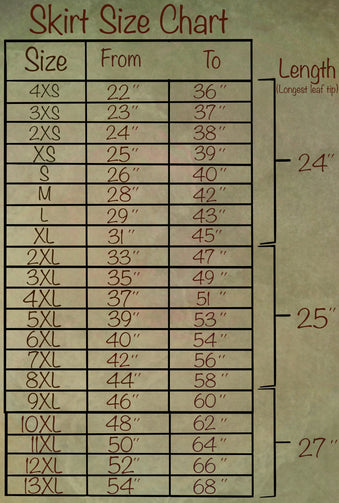 Skirt Size Chart
Size From To
Length
(Longest leaf tip)
4XS 22" 36"
3XS 23" 37"
2XS 24" 38"
XS 25" 39"
24"
S 26" 40"
M 28" 42"
L 29" 43"
XL 31" 45"
2XL 33" 47"
3XL 35" 49"
4XL 37" 51"
5XL 39" 53"
25"
6XL 40" 54"
7XL 42" 56"
8XL 44" 58"
9XL 46" 60"
10XL 48" 62"
11XL 50" 64"
27"
12XL 52" 66"
13XL 54" 68"